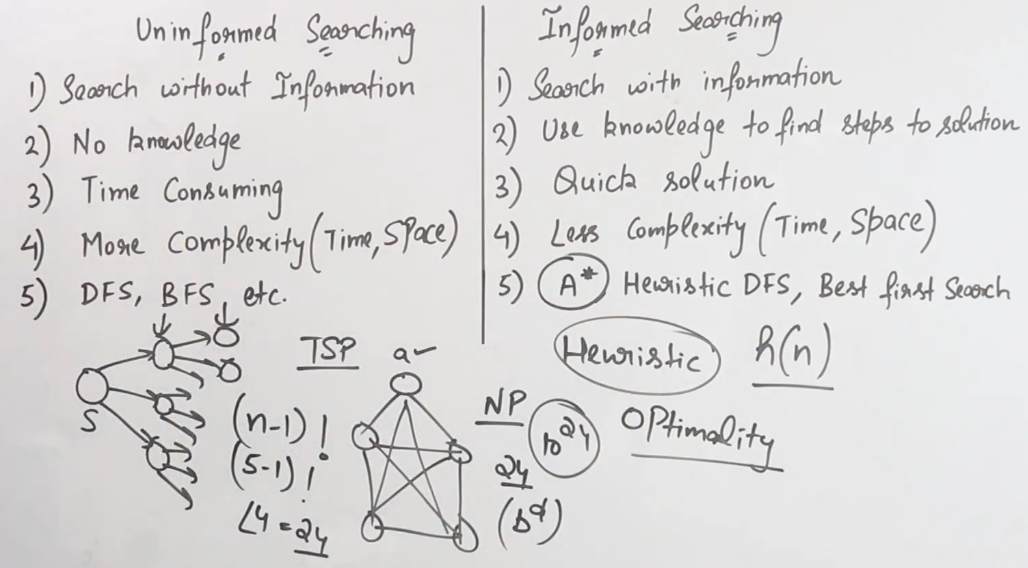 Uninformed Searching
1) Search without Information
2) No knowledge
3) Time Consuming
4) More Complexity (Time, Space)
5) DFS, BFS, etc.
S
TSP
a
(n-1)!
(5-1)!
∠4 = 24
NP
10²⁴
24
(bᵈ)
Informed Searching
1) Search with information
2) Use knowledge to find steps to solution
3) Quick solution
4) Less Complexity (Time, Space)
5) A* Heuristic DFS, Best first Search
Heuristic h(n)
Optimality